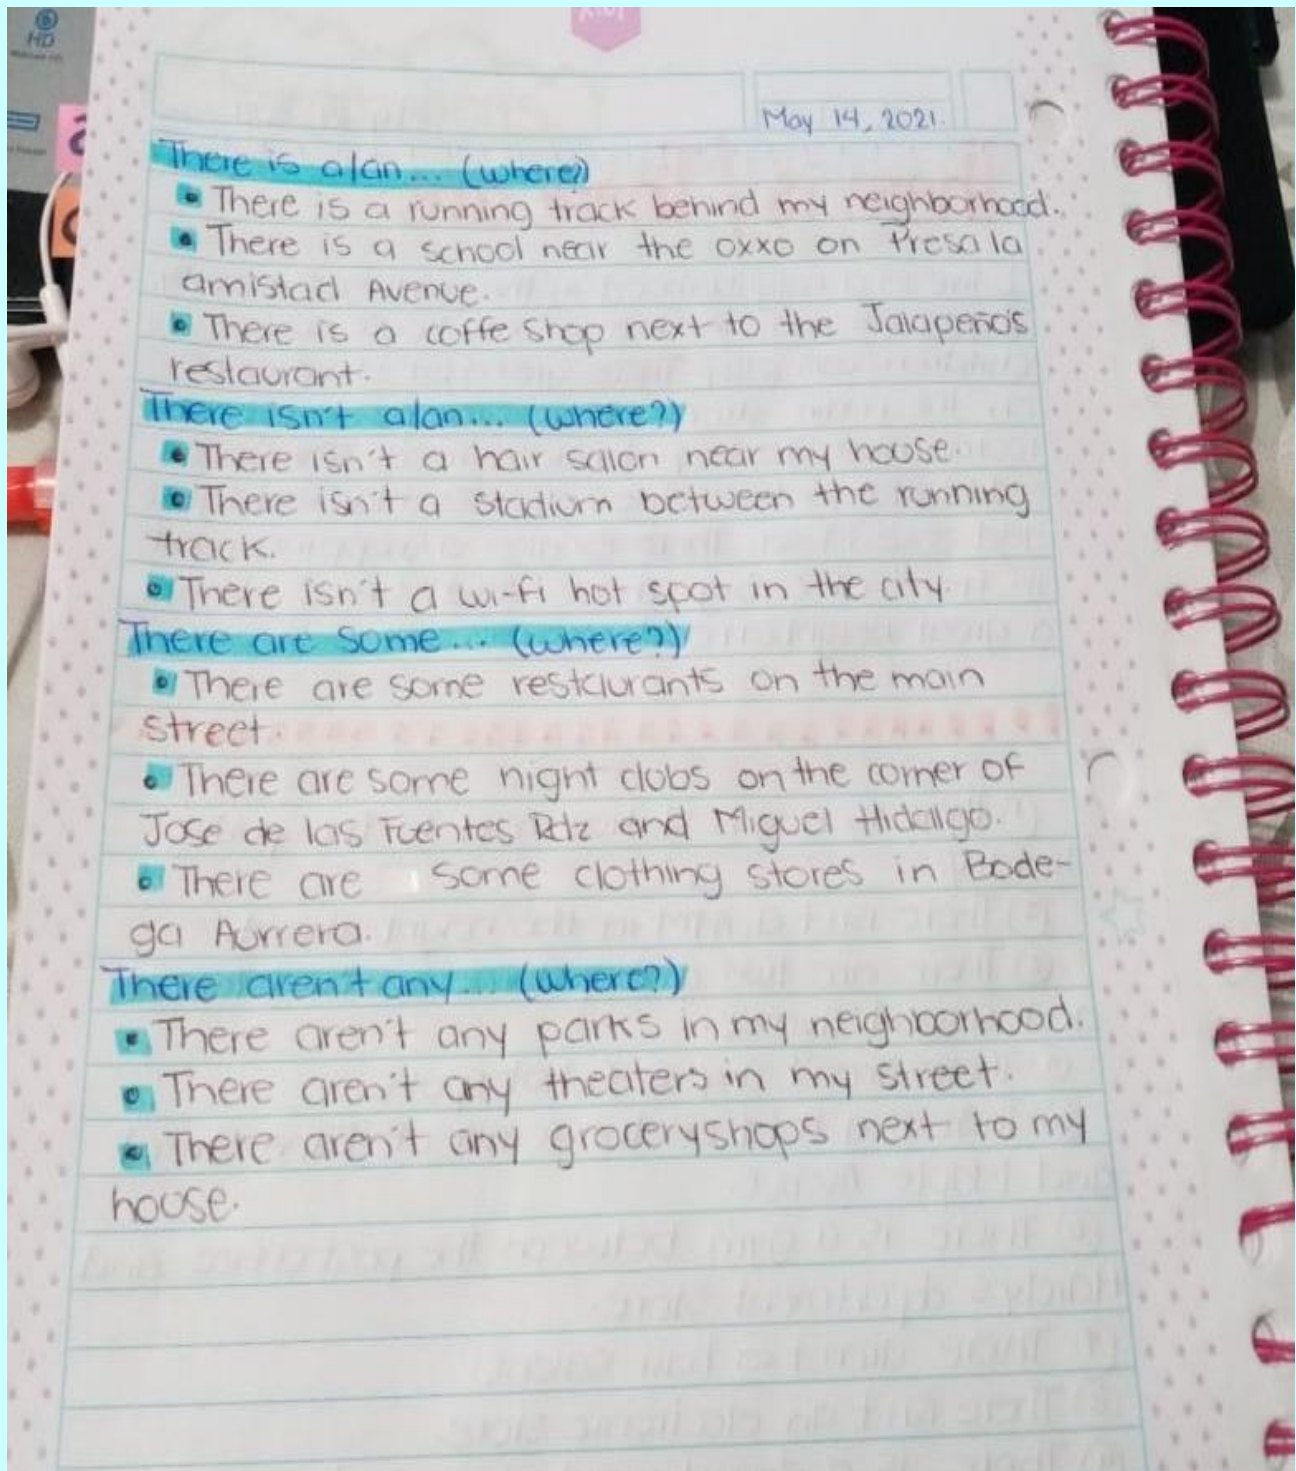 HD
May 14, 2021.
There is a/an... (where?)
• There is a running track behind my neighborhood.
• There is a school near the oxxo on Presa la
amistad Avenue.
• There is a coffe shop next to the Jalapeños
restaurant.
There isn't a/an... (where?)
• There isn't a hair salon near my house.
• There isn't a stadium between the running
track.
• There isn't a wi-fi hot spot in the city.
There are some... (where?)
• There are some restaurants on the main
street.
• There are some night clubs on the corner of
Jose de las Fuentes Rdz and Miguel Hidalgo.
• There are some clothing stores in Bode-
ga Aurrera.
There aren't any... (where?)
• There aren't any parks in my neighborhood.
• There aren't any theaters in my street.
• There aren't any grocery shops next to my
house.